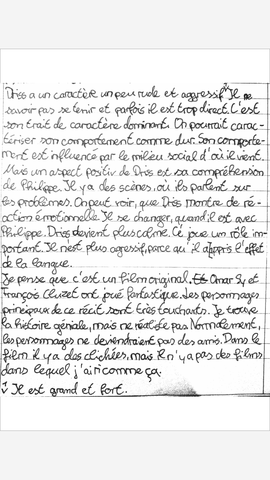 Driss a un caractère un peu rude et aggressif √ Il ne
savoir pas se tenir et parfois il est trop direct. C'est
son trait de caractère dominant. On pourrait carac-
tériser son comportement comme dur. Son comporte-
ment est influencé par le milieu social d'où il vient.
Mais un aspect positiv de Driss est sa compréhension
de Philippe. Il y a des scènes, où ils parlent sur
les problèmes. On peut voir, que Driss montre de ré-
action émotionnelle. Il se changer, quand il est avec
Philippe. Driss devient plus calme. Ce joue un rôle im-
portant. Il n'est plus agressif, parce qu'il appris l'effet
de la langue.
Je pense que c'est un film original. Omar Sy et
François Cluzet ont joué fantastique. Les personnages
principaux de ce récit sont très touchants. Je trouve
la histoire géniale, mais ne réaliste pas. Normalement,
les personnages ne deviendraient pas des amis. Dans le
film il y a des clichées, mais il n'y a pas des films
dans lequel j'ai ri comme ça.
√ Il est grand et fort.